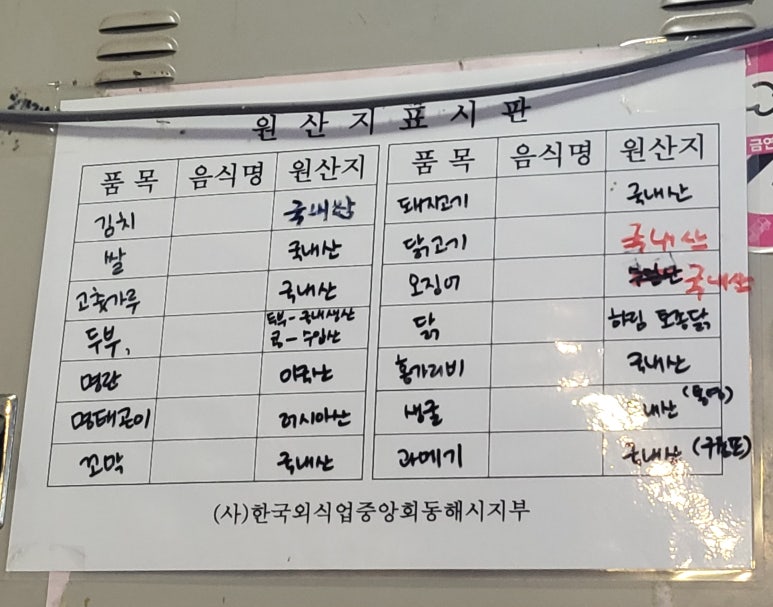 원산지표시판
품목 음식명 원산지
김치 국내산
쌀 국내산
고춧가루 국내산
두부, 두부-국내생산
콩-수입산
명란 미국산
명태곤이 러시아산
꼬막 국내산
품목 음식명 원산지
돼지고기 국내산
닭고기 국내산
오징어 국내산
닭 하림 토종닭
홍가리비 국내산
생굴 내산 (통영)
과메기 국내산 (구룡포)
(사)한국외식업중앙회동해시지부
금연